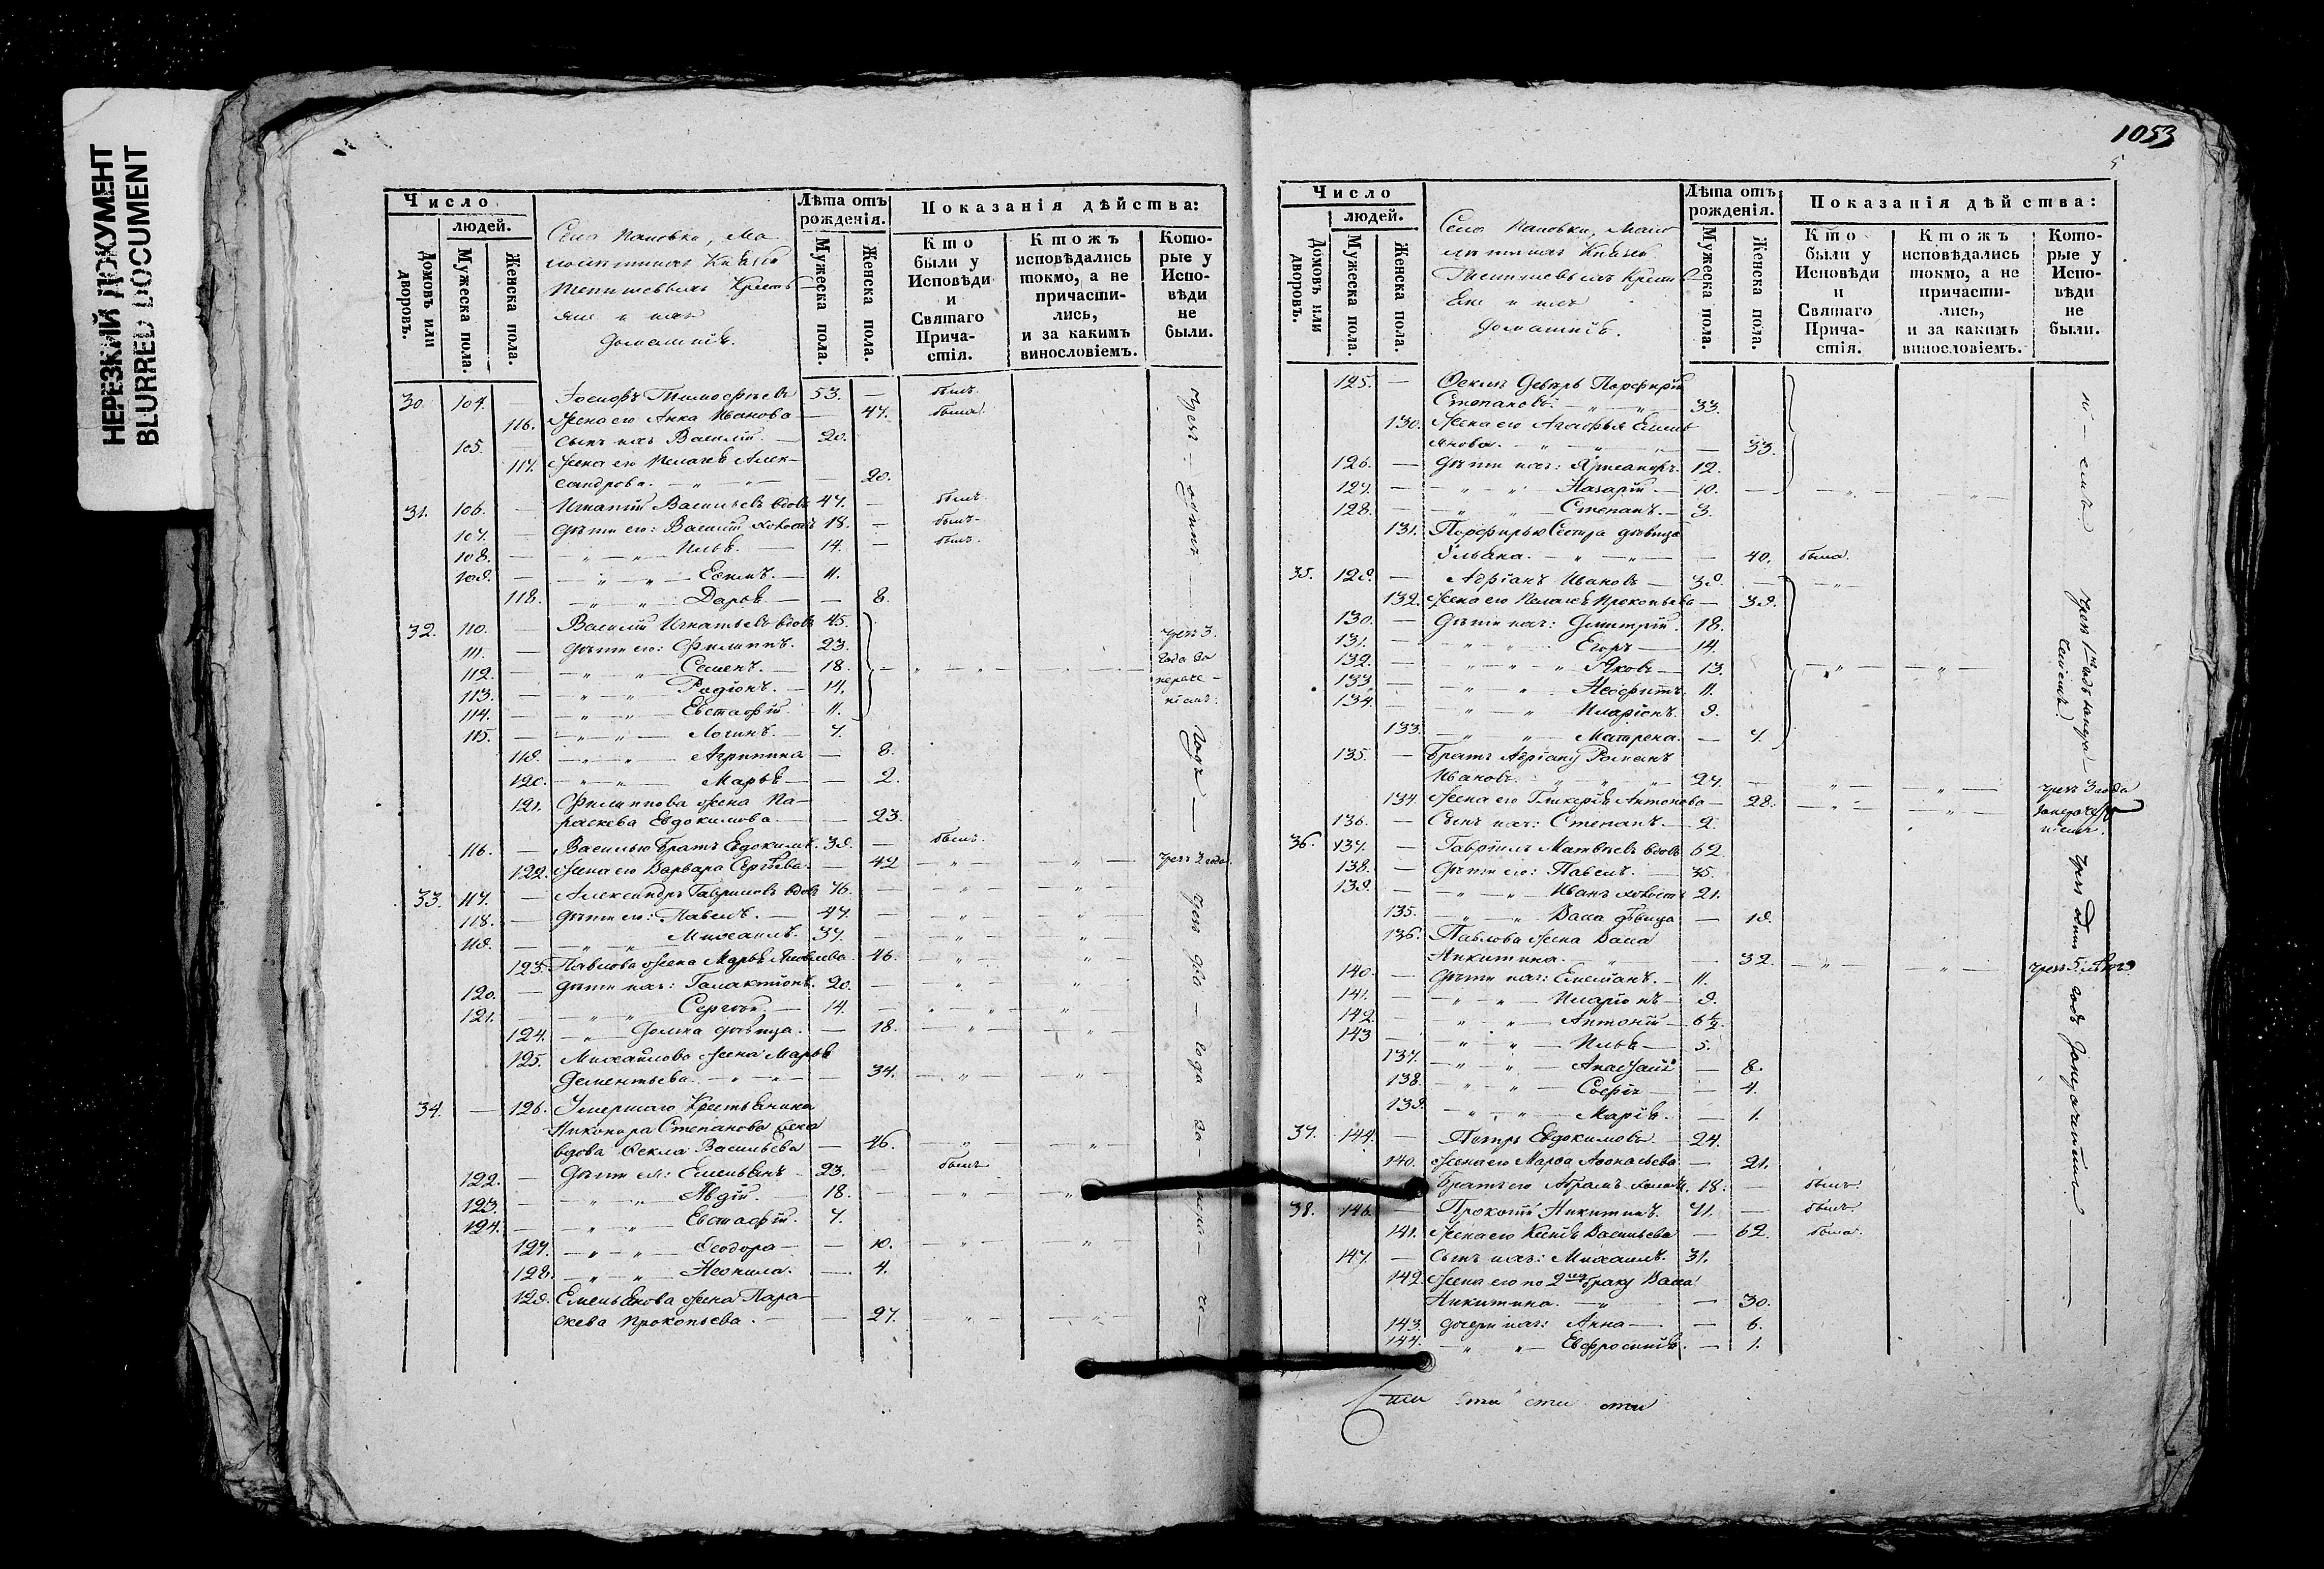 НЕРЕЗКИЙ ДОКУМЕНТ
BLURRED DOCUMENT
Число
людей.
Домовъ или дворовъ.
Мужеска пола.
Женска пола.
Лѣта отъ рожденія.
Мужеска пола.
Женска пола.
Показанія дѣйства:
Кто были у Исповѣди и Святаго Прича-стія.
Ктожъ исповѣдались токмо, а не причасти-лись, и за какимъ винословіемъ.
Кото-рые у Испо-вѣди не были.
домашніе.
30. 104. Іосифъ Тимофѣевъ 53. — былъ.
116. Жена его Анна Иванова — 47. была.
105. Сынъ ихъ Василій. — 20.
117. Жена его Пелагея Алек-
сандрова. — 20.
31. 106. — Игнатій Васильевъ вдовъ 47. — былъ.
107. — Дѣти его: Василій холостъ 18. — былъ.
108. — Илья. — 14. — былъ.
109. — Евѳимъ. — 11.
118. Дарья — 8.
32. 110. — Василій Игнатьевъ вдовъ 45.
111. — Дѣти его: Филиппъ. 23.
112. — Семенъ. — 18.
113. — Родіонъ. — 14.
114. — Евстафій. 11.
115. — Логинъ. — 7.
119. Агрипина — 8.
120. Марья — 2.
121. Филиппова жена Па-
раскева Евдокимова. — 23.
116. — Василью братъ Евдокимъ. 39. — былъ.
122. Жена его Варвара Сергѣева. — 42 чрезъ 2 года.
33. 117. — Александръ Гавриловъ вдовъ 76.
118. — Дѣти его: Павелъ. — 47.
119. — Михаилъ. 37.
123. Павлова жена Марья Яковлева. 46.
120. — Дѣти ихъ: Галактіонъ. 20.
121. — Сергѣй — 14.
124. Домна дѣвица. — 18.
125. Михайлова жена Марья
Дементьева. — 34.
34. — 126. Умершаго Крестьянина
Никонора Степанова жена
вдова Ѳекла Васильева — 46.
122. — Дѣти ея: Емельянъ 23. — былъ
123. — Авдій. 18.
124. — Евстафій. 7.
127. Ѳеодора — 10.
128. Неонила. — 4.
129. Емельянова жена Пара-
скева Прокопьева. — 27.
чрезъ — одинъ — годъ —
чрезъ 3 года
чрезъ два — года
1053
Число
людей.
Домовъ или дворовъ.
Мужеска пола.
Женска пола.
Лѣта отъ рожденія.
Мужеска пола.
Женска пола.
Показанія дѣйства:
Кто были у Исповѣди и Святаго Прича-стія.
Ктожъ исповѣдались токмо, а не причасти-лись, и за какимъ винословіемъ.
Кото-рые у Испо-вѣди не были.
домашніе.
125. — Ѳеклы деверь Порфирій
Степановъ. 33.
130. Жена его Агафья Емель-
янова. — 33.
126. — Дѣти ихъ: 12.
127. — Назарій. — 10.
128. — Степанъ. — 3.
131. Порфирью Сестра дѣвица
Ульяна. — 40. была.
35. 129. — Адріанъ Ивановъ — 39.
132. Жена его Пелагея Прокопьева — 39.
130. — Дѣти ихъ: Дмитрій. 18.
131. — Егоръ — 14.
132. — Яковъ — 13.
133 — Неофитъ. 11.
134. — Иларіонъ. 9.
133. Матрена. — 7.
135. — Братъ Адріану Романъ
Ивановъ. 27.
134. Жена его Гликерія Антонова — 28. чрезъ 3 года
136. — Сынъ ихъ: Степанъ. — 2.
36. 137. — Гавріилъ Матвѣевъ вдовъ 62.
138. — Дѣти его: Павелъ. — 35.
139. — Иванъ холостъ 21.
135. Васса дѣвица — 19.
136. Павлова жена Васса
Никитина. — 32.
140. — Дѣти ихъ: Емеліанъ. — 11.
141. — Иларіонъ — 9.
142 — Антоній — 6½.
143 — Илья — 5.
137. — 8.
138. Софія — 4.
139. Марія. — 1.
37. 144. — Петръ Евдокимовъ. — 24.
140. Жена его Марѳа Аѳонасьева — 21.
Братъ его Абрамъ холостъ. 18. — былъ.
38. 146. — Прокопій Никитинъ. 71. — былъ
141. Жена его Ксенія Васильева — 62. была.
147. — Сынъ ихъ: Михаилъ. 31.
142. Жена его по 2му браку Васса
Никитина. — 30.
143. Дочери ихъ: Анна — 6.
144. Евфросинія. — 1.